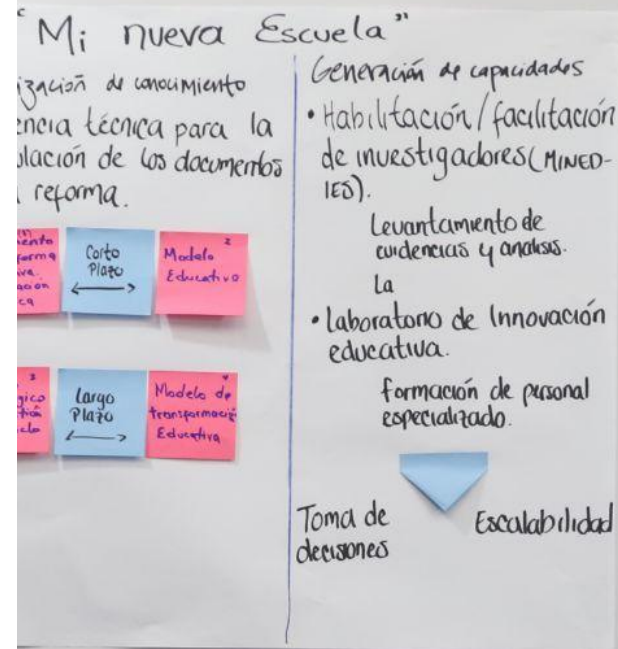 "Mi nueva Escuela"
ización de conocimiento
encia técnica para la
ulación de los documentos
reforma.
(1)
ento
forma
iva
ación
ca
Corto
Plazo
2
Modelo
Educativo
3
gico
clo
Largo
Plazo
4
Modelo de
transformació
Educativa
Generación de capacidades
• Habilitación/facilitación
de investigadores (MINED-
IES).
Levantamiento de
evidencias y analisis.
La
• Laboratorio de Innovación
educativa.
formación de personal
especializado.
Toma de
decisiones
Escalabilidad